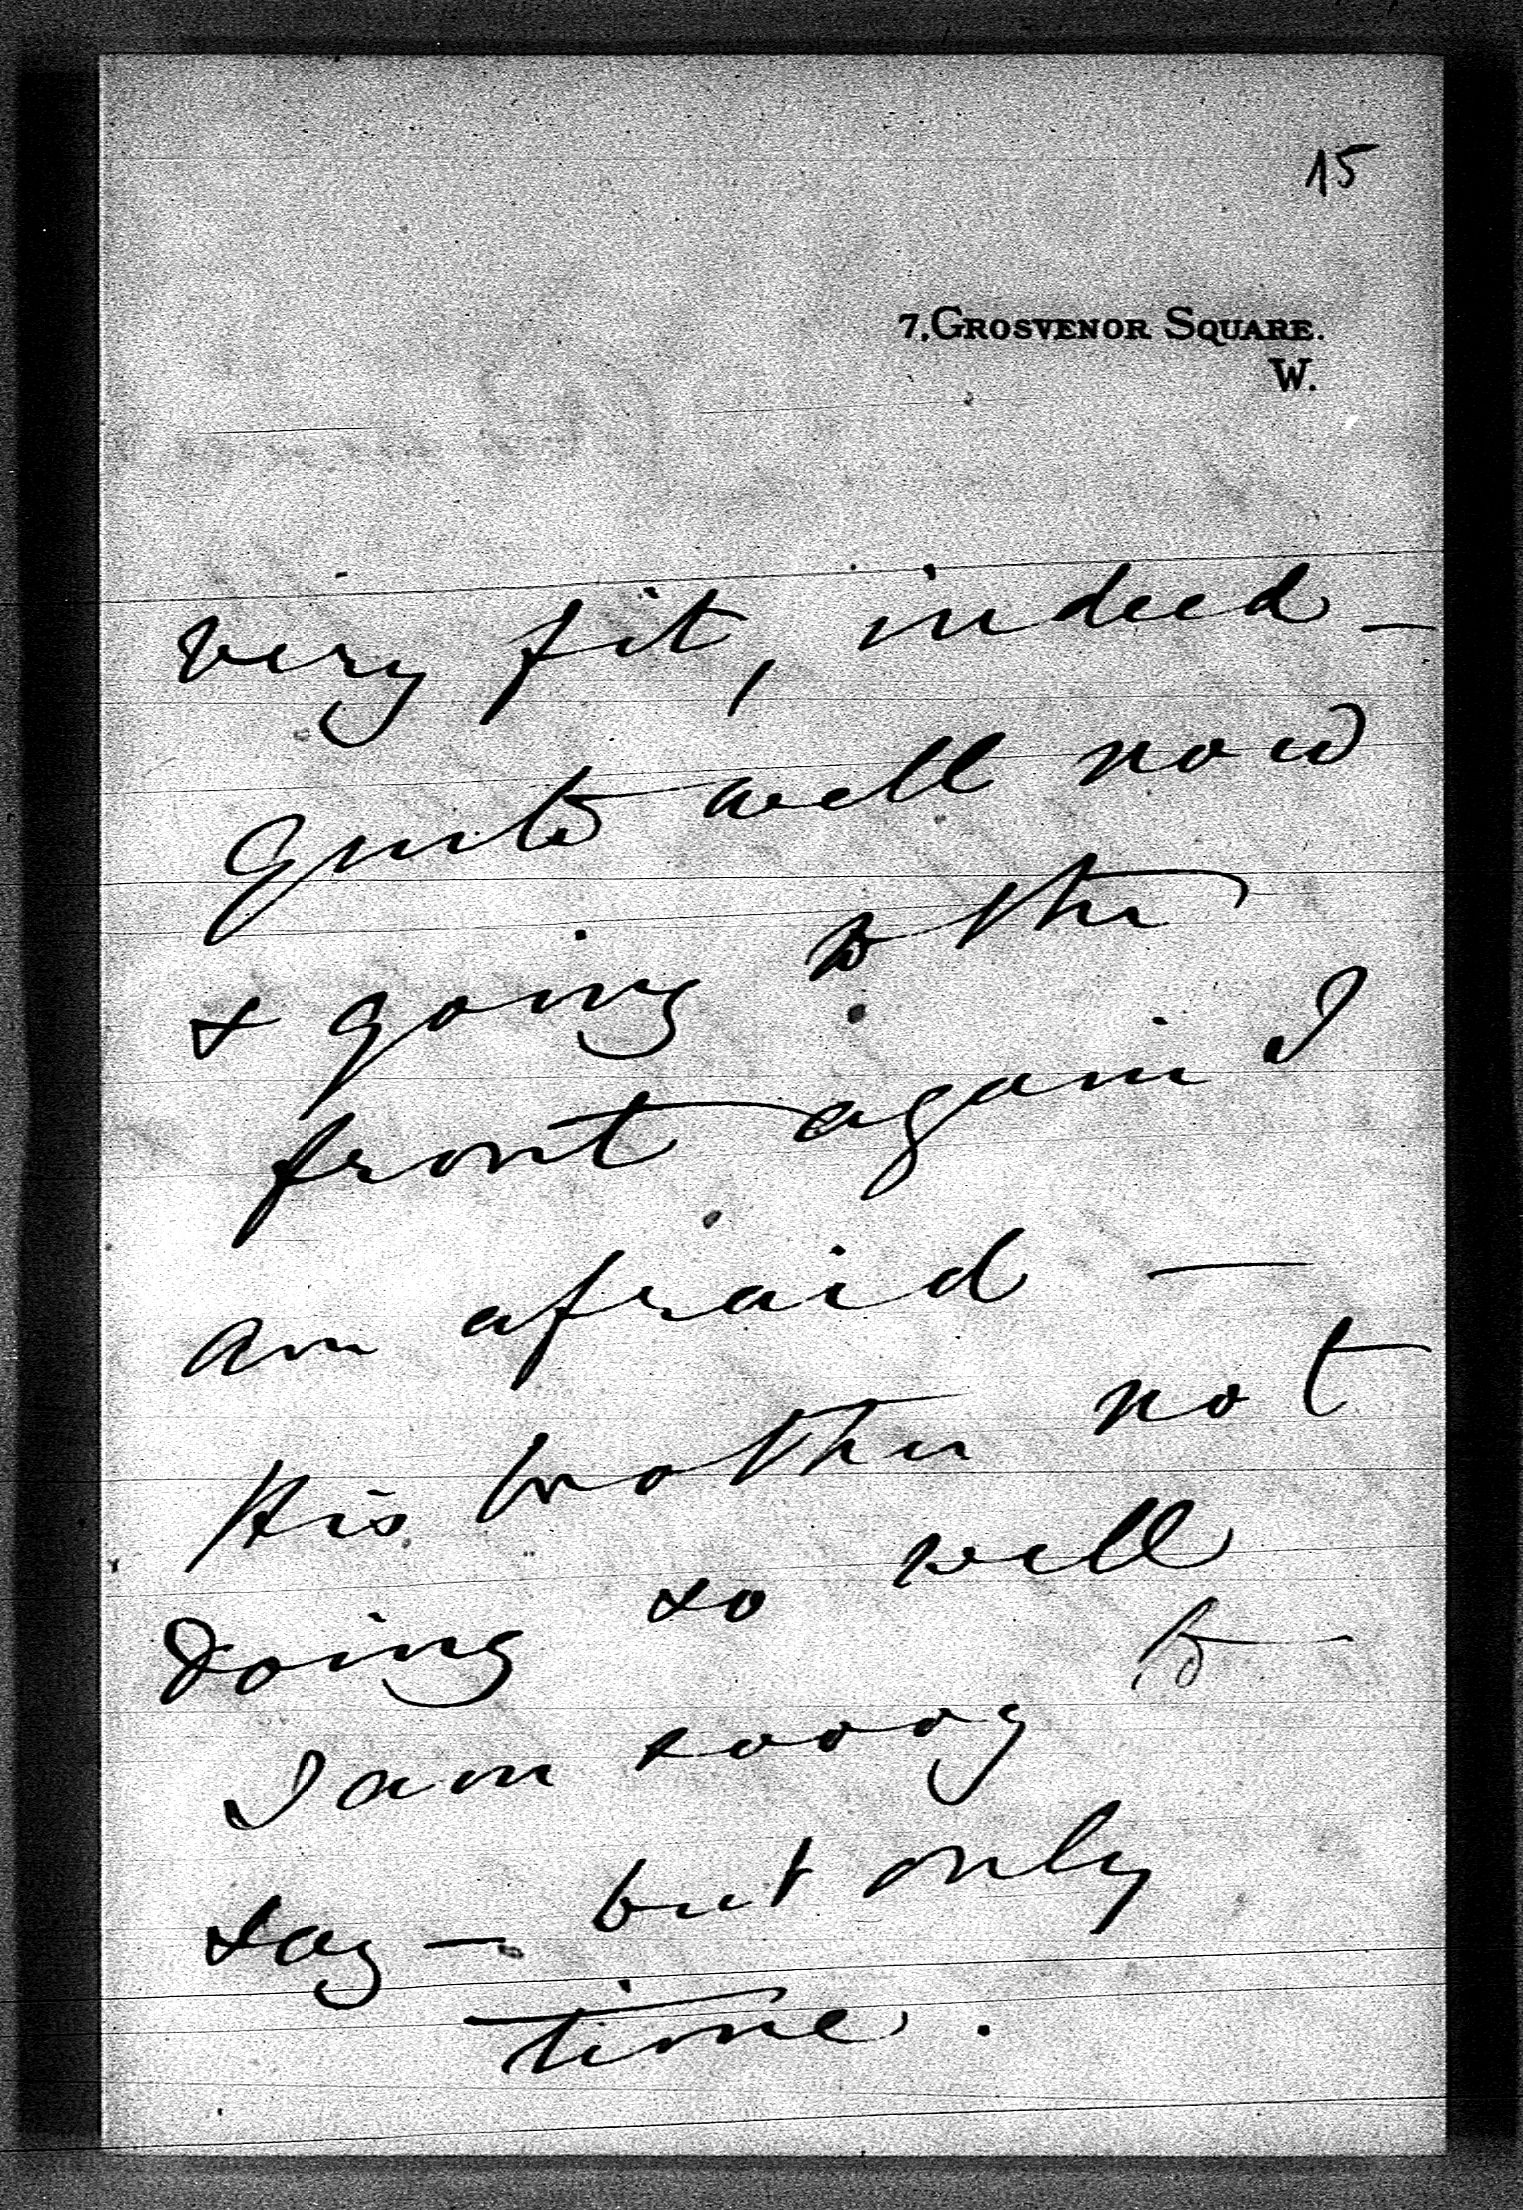 15
7, GROSVENOR SQUARE.
W.
very fit, indeed –
quite well now
& going to the
front again I
am afraid —
His brother not
doing so well
I am sorry to
say – but only
time.